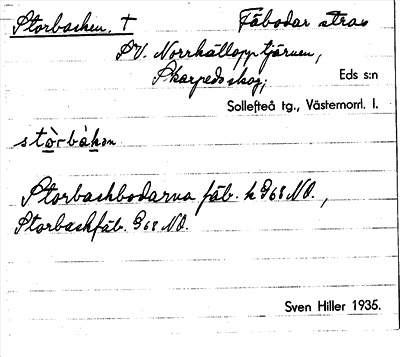 Storbacken. † Fäbodar strax
SV. Norrhälloppstjärnen,
Skarpedsskog; Eds s:n
Sollefteå tg., Västernorrl. l.
stòrbàkən
Storbackbodarna fäb. k G68NO.,
Storbackfäb. G68 NO.
Sven Hiller 1935.